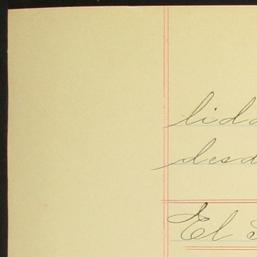 lida
desd
El S